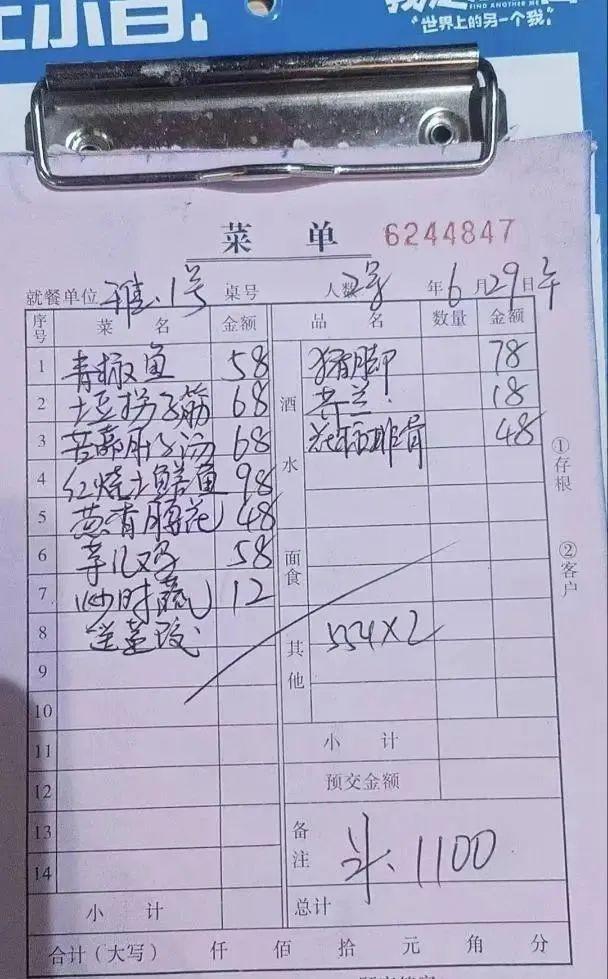 FIND ANOTHER ME
世界上的另一个我
菜 单 6244847
就餐单位 雅.1号 桌号 人数 2字 年 6 月 29 日 午
序号 菜 名 金额 品 名 数量 金额
1 青椒鱼 58 酒水 猪脚 78
2 土豆拐子筋 68 18
3 68 花甲排骨 48
4 红烧土鲜鱼 98
5 48
6 58 面食
7 炒时蔬 12
8 其他 554×2
9
10
11 小 计
12 预交金额
13 备注 斗、1100
14
小 计 总计
合计（大写） 仟 佰 拾 元 角 分
①存根
②客户